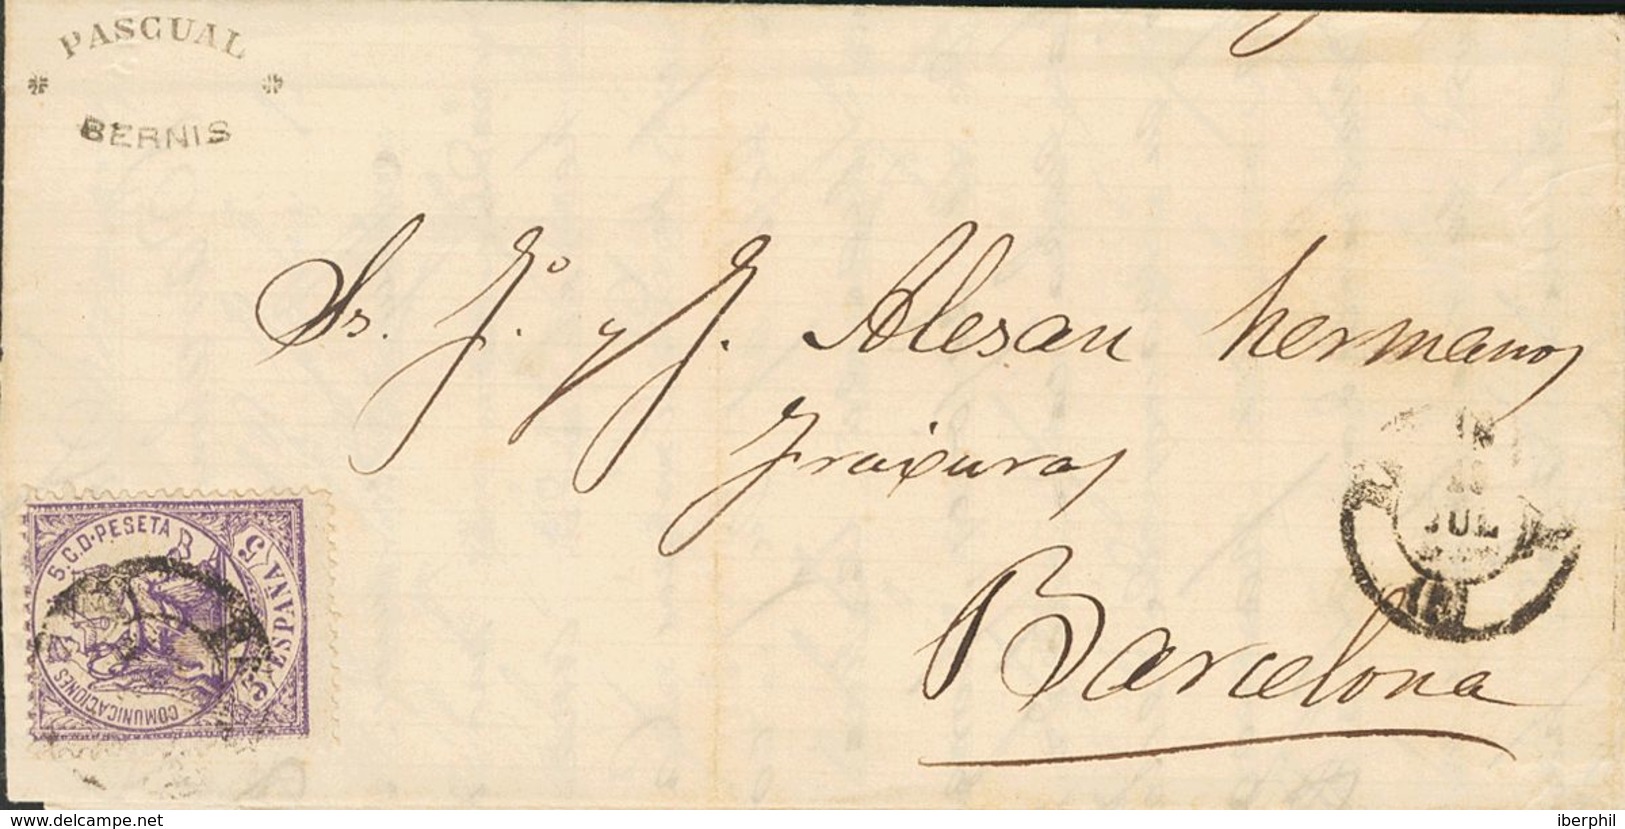 PASCUAL
BERNIS
Srs. Jo. y J. Alesan hermanos
Barcelona
5. C.D. PESETA
ESPAÑA
COMUNICACIONES
JUL
www.delcampe.net
iberphil